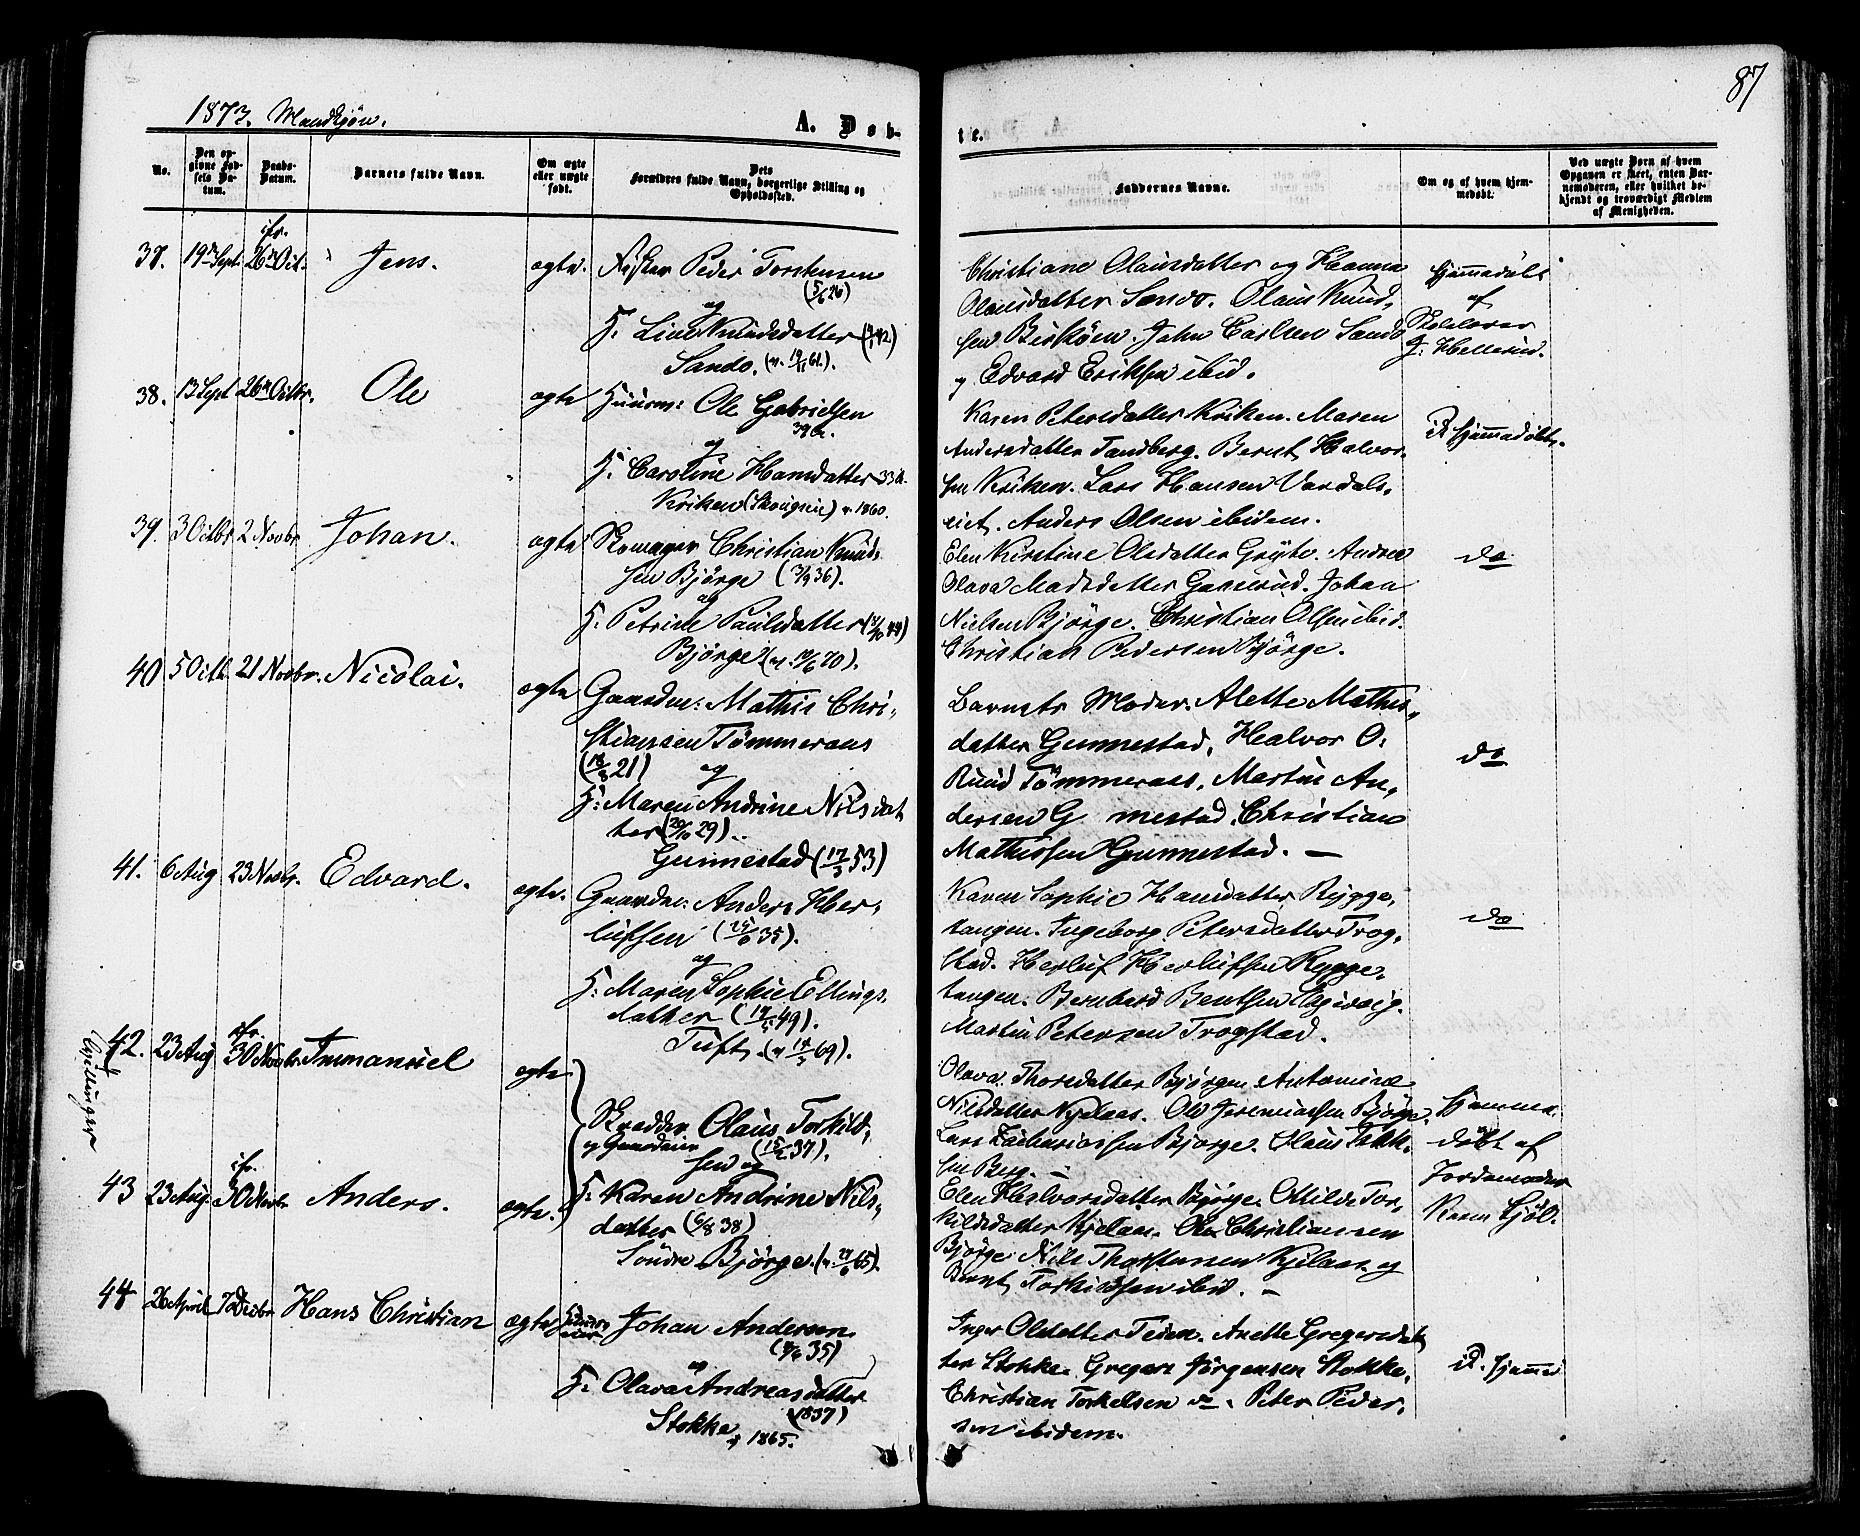 87
1873. Mandkjøn.
A. Døb-
te.
No.
Den op-
givne Fød-
sels Da-
tum.
Daabs-
Datum.
Barnets fulde Navn.
Om ægte
eller uægte
født.
Dets
Forældres fulde Navn, borgerlige Stilling og
Opholdssted.
Faddernes Navne.
Om og af hvem hjem-
medøbt.
Ved uægte Børn af hvem
Opgaven er skeet, enten Bar-
nemoderen, eller hvilket be-
kjendt og troværdigt Medlem
af Menigheden.
37. 19de Sept. ifr. 26de Oct. Jens. ægte. Fisker Peder Torstensen
(5/6 26)
og
H. Line Knudsdatter
Sando.
Christiane Olausdatter og Hanna
Olausdatter Sando. Olaus Knud-
sen Birkøen. John Carlsen Sando
og Edvard Eriksen ibid.
Hjemmedøbt
af
Skolelærer
J. Hellerud.
38. 13 Sept 26de Octbr. Ole ægte Huusm: Ole Gabrielsen
39 A.
og
H. Caroline Hansdatter 33 A.
Kriken 1860.
Karen Petersdatter Kriken. Maren
Andersdatter Tandberg. Bernt Halvor-
sen Kriken. Lars Hansen Vardals-
eiet. Anders Olsen ibidem.
ei hjemmedøbt.
39. 3 Octbr 2 Novbr Johan. ægte Skomager Christian Knud-
sen Bjørge
og
H. Petrine Paulsdatter
Bjørge
Elen Kirstine Olsdatter Grytе. Andrea
Olava Madsdatter Johan
Nielsen Bjørge. Christian Olsen ibid.
Christian Pedersen Bjørge.
do
40 5 Octb. 21 Novbr. Nicolai. ægte Gaardm: Mathis Chri-
stiansen Tømmeraas
(18/8 21) og
H: Maren Andrine Nilsdat-
ter (20/10 29).
Gunnestad (17/3 53)
Barnets Moder. Alette Mathis-
datter Gunnestad, Halvor O:
Ruud Tømmeraas, Martin An-
dersen G mestad, Christian
Mathissen Gunnestad. —
do
41. 6 Aug 23 Novbr. Edvard. ægte. Gaardm: Anders Her-
lufsen
og
H: Maren Sophie Ellings-
datter
Tuft.
Karen Sophie Hansdatter Rygge-
tangen. Ingeborg Petersdatter Trog-
stad. Herluf Herlufsen Rygge-
tangen. Bernhard Bentsen
Martin Petersen Trogstad.
do
42. 23 Aug ifr. 30 Novbr. Immanuel ægte
Tvillinger
Skrædder Olaus Torkild-
og Gaardeier
sen og (15/2 37).
H: Karen Andrine Nils-
datter (6/8 38)
Søndre Bjørge.
Olava Thorsdatter Bjørgen. Antonine
Nilsdatter Kjelaas. Ole Jeremiassen Bjørge.
Lars Zachariassen Bjørge. Olaus
sen Berg. —
Hjemme-
døbt af
Jordemoder
Karen Hjøl.
43 23 Aug. ifr. 30 Novbr Anders. ægte.
Elen Halvorsdatter Bjørge. Otilde Tor-
kildsdatter Kjelaas. Ole Christiansen
Bjørge. Nils Thorstensen Kjelaas og
Bernt Torkildsen ibid. —
44 26 April 7 Decbr Hans Christian ægte Huus-
eier Johan Andersen
og
H. Olava Andreasdatter
(1837)
Stokke 1865.
Inger Olsdatter Teien. Anette Gregersdat-
ter Stokke. Gregers Jørgensen Stokke.
Christian Torkelsen do. Peter Peder-
sen ibidem.
ei. hjemme